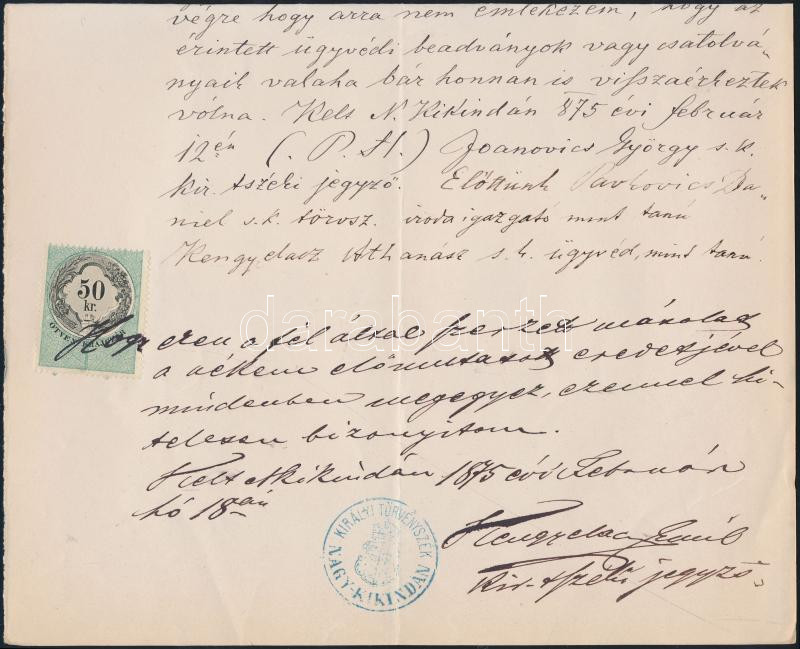 végre hogy arra nem emlékezem, hogy az
érintett ügyvédi beadványok vagy csatolvá-
nyaik valaha bár honnan is visszaérkeztek
volna. Kelt N. Kikindán 875 évi február
12én (. P. H.) Joanovics György s. k.
kir. tszéki jegyző. Előttünk Pavkovics Da-
niel s. k. törvsz. iroda igazgató mint tanú
Athanász s. k. ügyvéd, mint tanú.
50
kr.
ÖTVEN KRAJCZÁR
Hogy ezen a fél által szerzett másolat
a nékem előmutatott eredetijével
mindenben megegyez, ezennel hi-
telesen bizonyítom.
Kelt Nkikindán 1875 évi Február
hó 18án
KIRÁLYI TÖRVÉNYSZÉK
NAGY-KIKINDÁN
Kir. tszéki jegyző.
darabanth